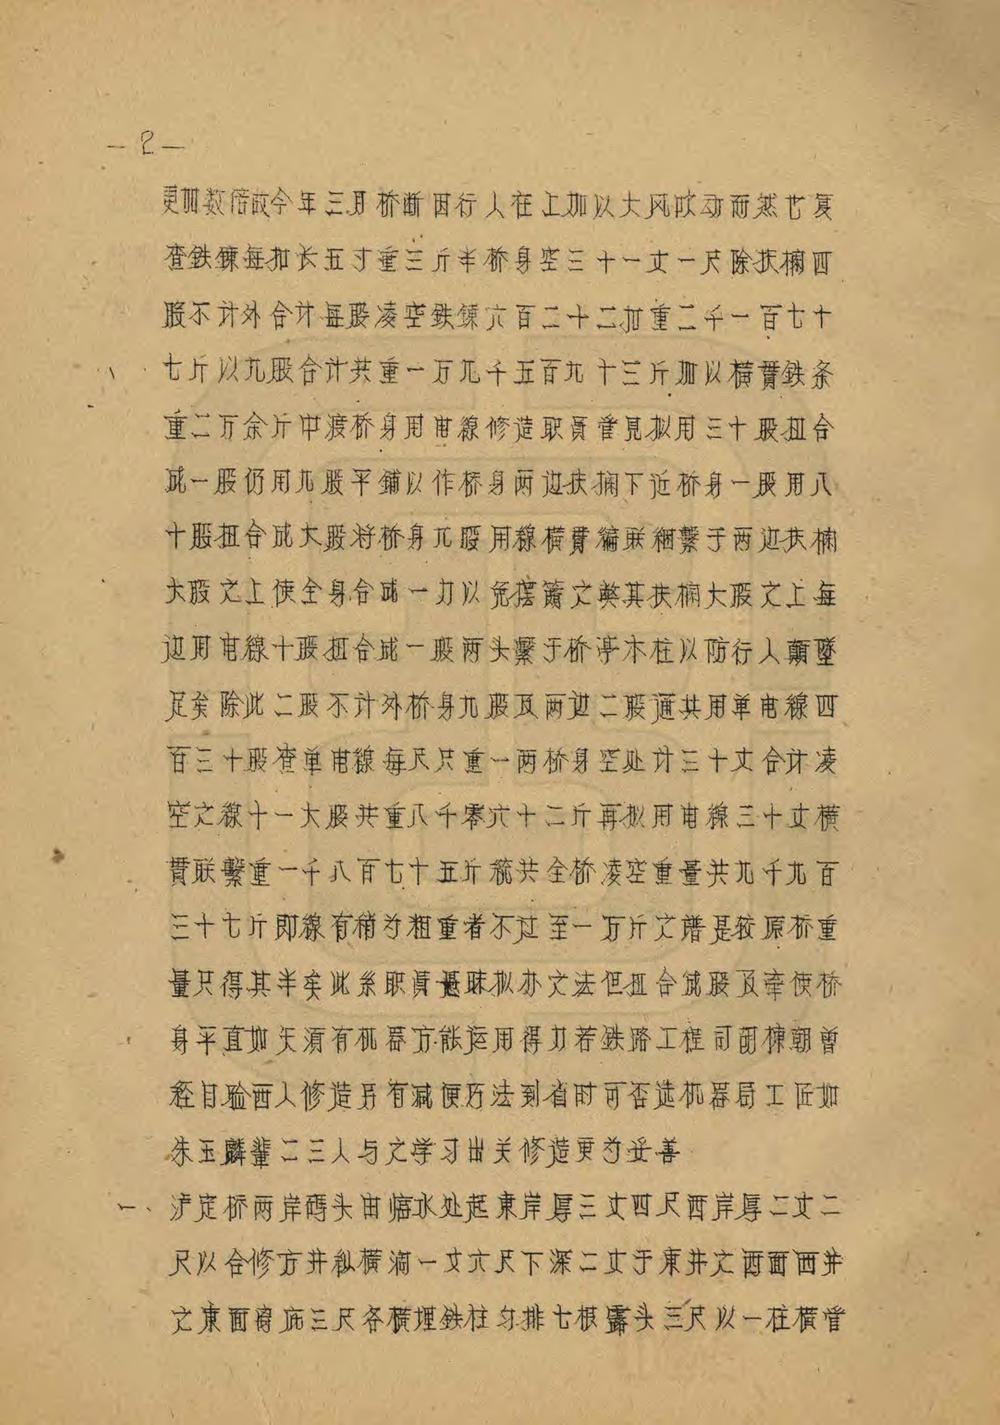 —2—
更加数倍故今年三月桥断因行人在上加以大风吹动而然也复
查鉄鍊每扣长五寸重三斤半桥身空三十一丈一尺除扶欄四
股不计外合计每股凌空鉄鍊六百二十二扣重二千一百七十
七斤以九股合计共重一万九千五百九十三斤加以横贯鉄条
重二万余斤中渡桥身用电線修造职员管見拟用三十股扭合
成一股仍用九股平鋪以作桥身两边扶欄下近桥身一股用八
十股扭合成大股将桥身九股用線横貫编联綑繫于两边扶欄
大股之上使全身合成一力以免擺簫之獘其扶欄大股之上每
边用电線十股扭合成一股两头繫于桥亭木柱以防行人顛墜
足矣除此二股不计外桥身九股及两边二股通共用单电線四
百三十股查单电線每尺只重一两桥身空处计三十丈合计凌
空之線十一大股共重八千零六十二斤再拟用电線三十丈横
貫联繫重一千八百七十五斤統共全桥凌空重量共九千九百
三十七斤即線有稍为粗重者不过至一万斤之譜是较原桥重
量只得其半矣此系职員愚昧拟办之法但扭合成股及牽使桥
身平直如矢須有机器方能运用得力若鉄路工程司胡棟朝曾
经目验西人修造另有减便方法到省时可否选机器局工匠如
朱玉麟輩二三人与之学习出关修造更为妥善
一、泸定桥两岸碼头由临水处起東岸厚三丈四尺西岸厚二丈二
尺以合修方井纵横濶一丈六尺下深二丈于東井之西面西井
之東面得底三尺各横埋鉄柱匀排七根露头三尺以一柱横管